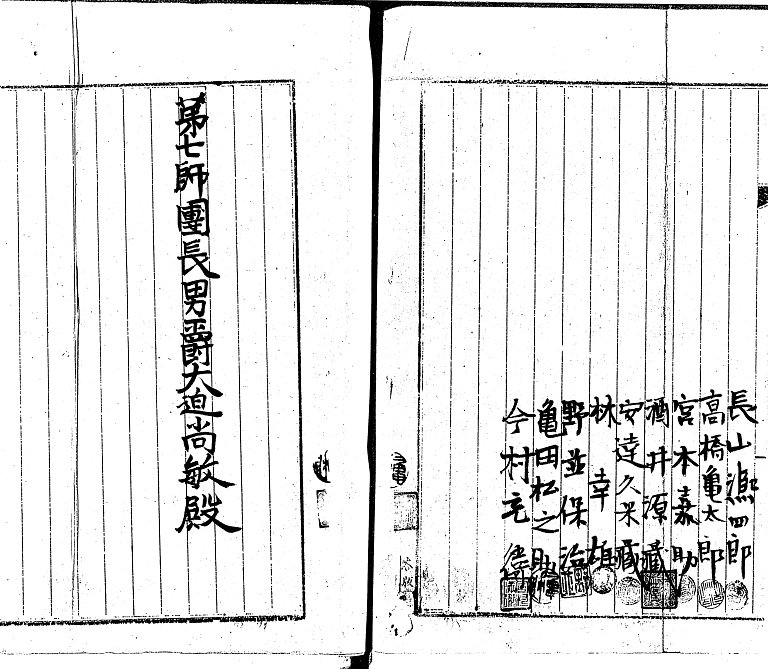 長山㴞四郎
高橋亀太郎
宮本嘉助
酒井源蔵
安達久米蔵
林幸雄
野並保治
亀田松之助
今村宅衛
第七師團長男爵大迫尚敏殿